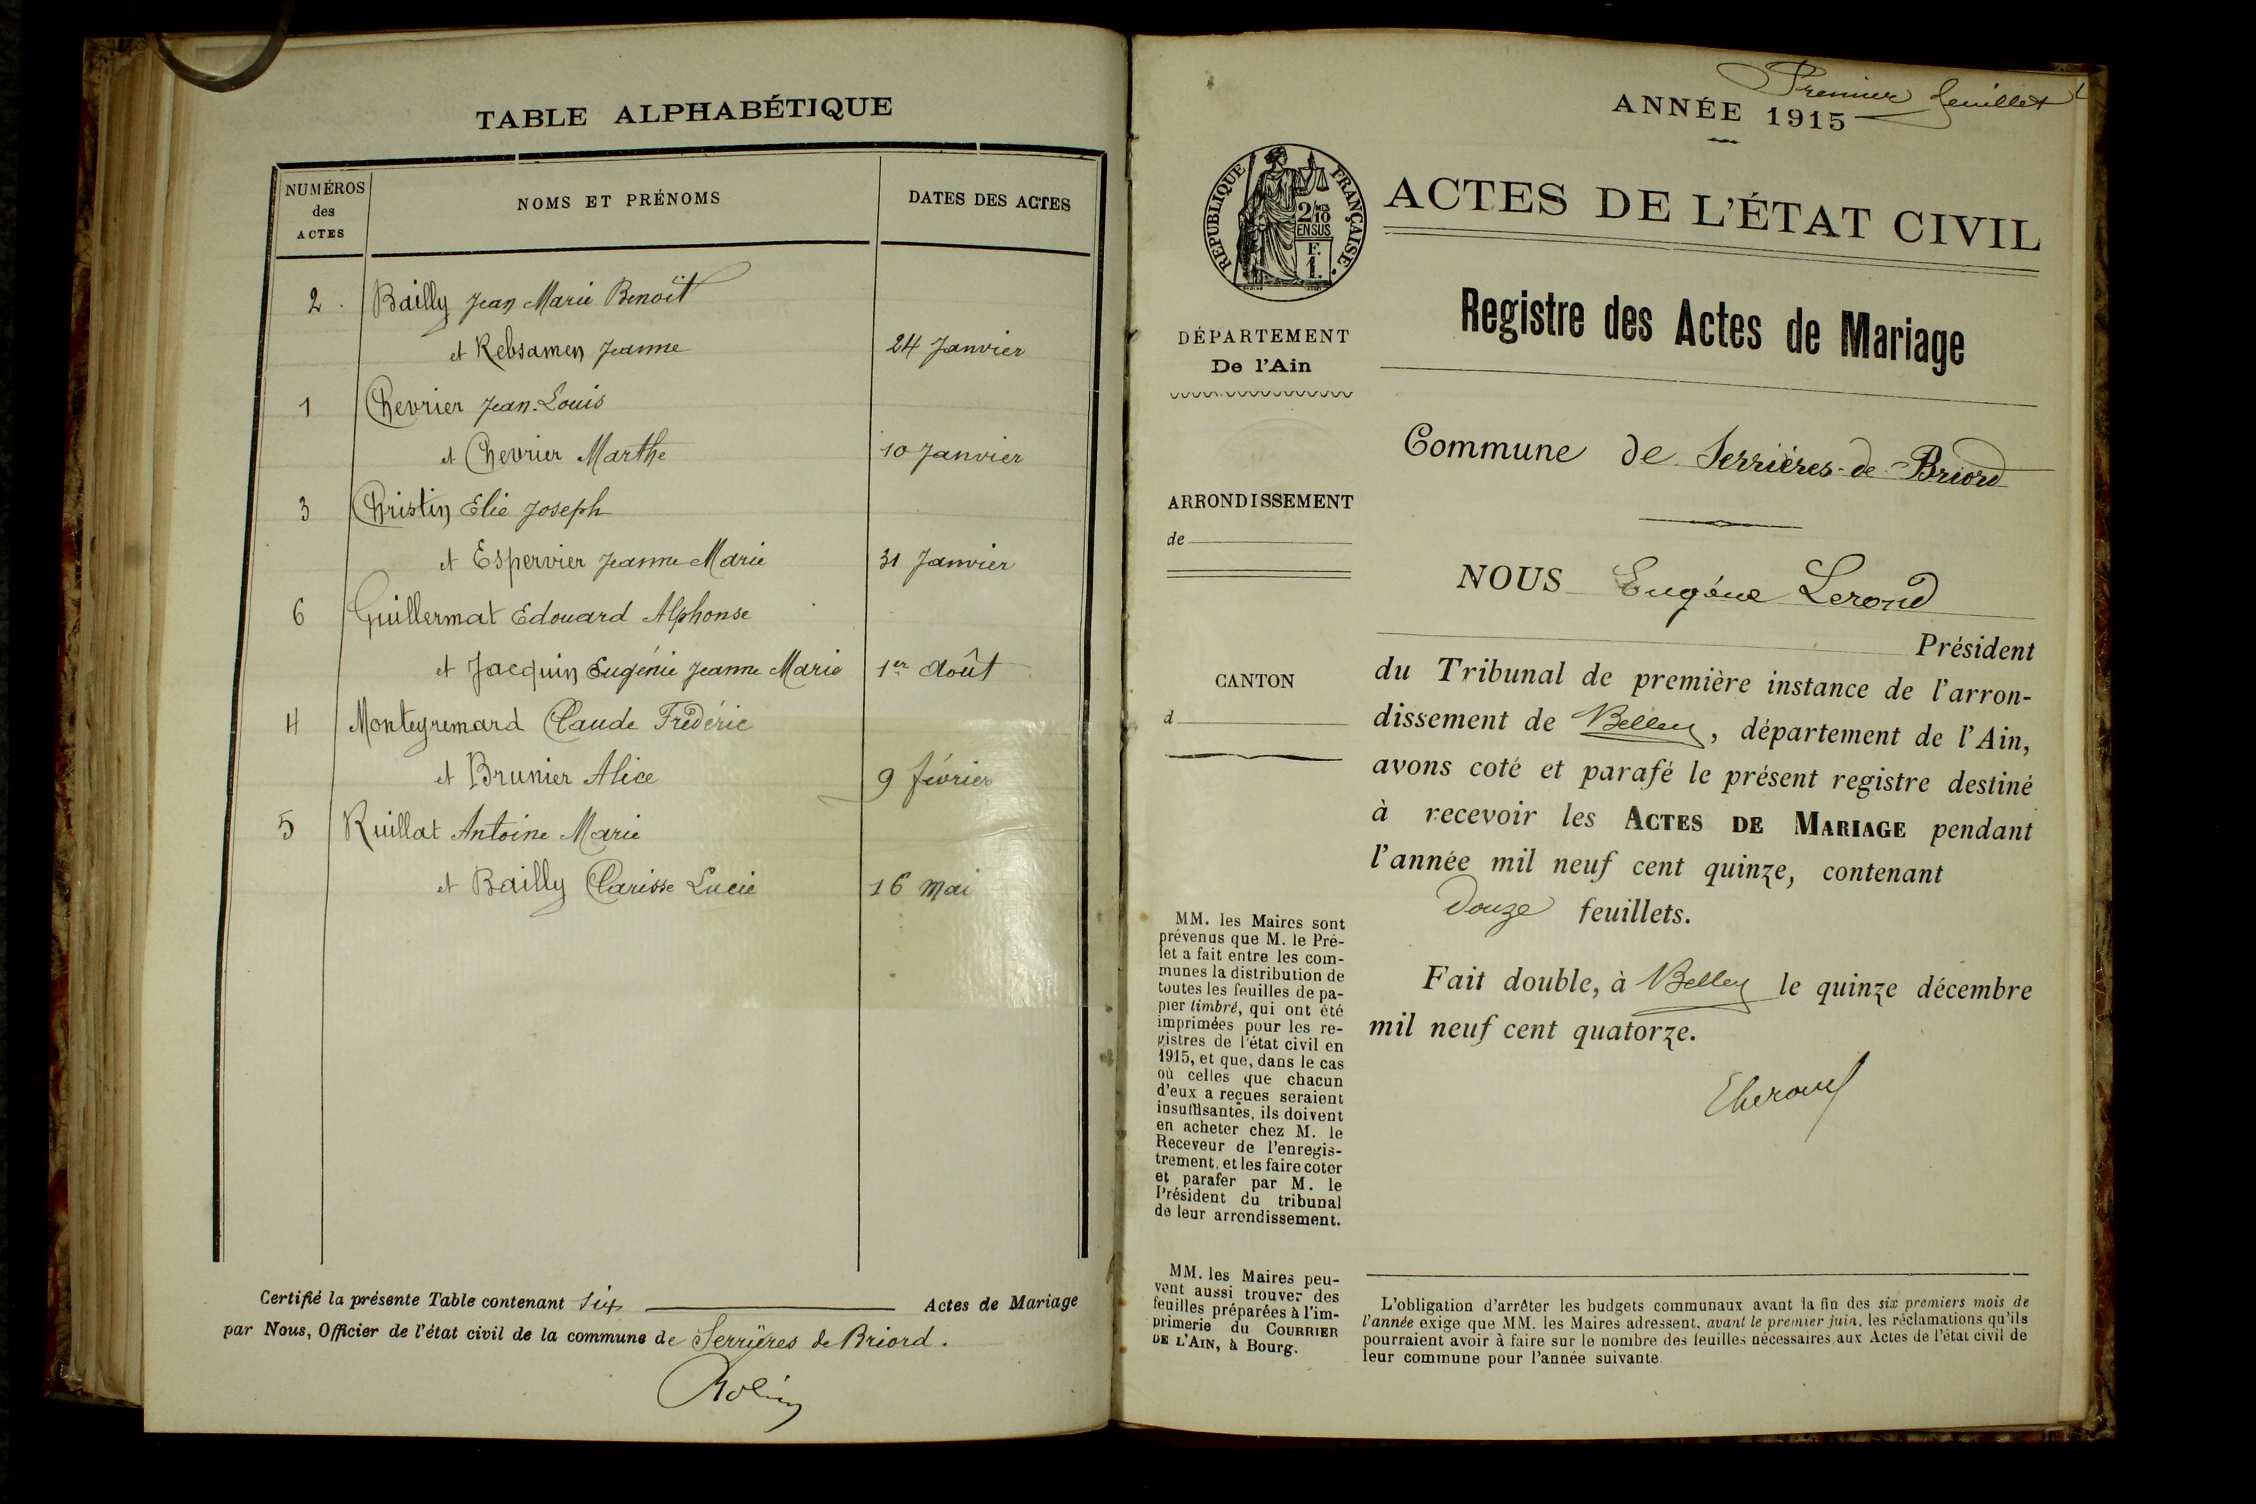 TABLE ALPHABÉTIQUE
NUMÉROS
des
ACTES
NOMS ET PRÉNOMS
DATES DES ACTES
2. Bailly Jean Marie Benoît
et Rebsamen Jeanne 24 Janvier
1 Chevrier Jean-Louis
et Chevrier Marthe 10 Janvier
3 Christin Elie Joseph
et Espervier Jeanne Marie 31 Janvier
6 Guillermat Edouard Alphonse
et Jacquin Eugénie Jeanne Marie 1er Août
4 Monteyremard Claude Frédéric
et Brunier Alice 9 février
5 Ruillat Antoine Marie
et Bailly Clarisse Lucie 16 Mai
Certifié la présente Table contenant six Actes de Mariage
par Nous, Officier de l'état civil de la commune de Serrières de Briord.
Premier feuillet
ANNÉE 1915
RÉPUBLIQUE FRANÇAISE
2/10 MES
EN SUS
F.
1.
ACTES DE L'ÉTAT CIVIL
Registre des Actes de Mariage
DÉPARTEMENT
De l'Ain
ARRONDISSEMENT
de
CANTON
d
MM. les Maires sont
prévenus que M. le Pré-
fet a fait entre les com-
munes la distribution de
toutes les feuilles de pa-
pier timbré, qui ont été
imprimées pour les re-
gistres de l'état civil en
1915, et que, dans le cas
où celles que chacun
d'eux a reçues seraient
insuffisantes, ils doivent
en acheter chez M. le
Receveur de l'enregis-
trement, et les faire coter
et parafer par M. le
Président du tribunal
de leur arrondissement.
MM. les Maires peu-
vent aussi trouver des
feuilles préparées à l'im-
primerie du COURRIER
DE L'AIN, à Bourg.
Commune de Serrières-de-Briord
NOUS Eugène Lerond
Président
du Tribunal de première instance de l'arron-
dissement de Belley, département de l'Ain,
avons coté et parafé le présent registre destiné
à recevoir les ACTES DE MARIAGE pendant
l'année mil neuf cent quinze, contenant
Douze feuillets.
Fait double, à Belley le quinze décembre
mil neuf cent quatorze.
L'obligation d'arrêter les budgets communaux avant la fin des six premiers mois de
l'année exige que MM. les Maires adressent, avant le premier juin, les réclamations qu'ils
pourraient avoir à faire sur le nombre des feuilles nécessaires aux Actes de l'état civil de
leur commune pour l'année suivante.